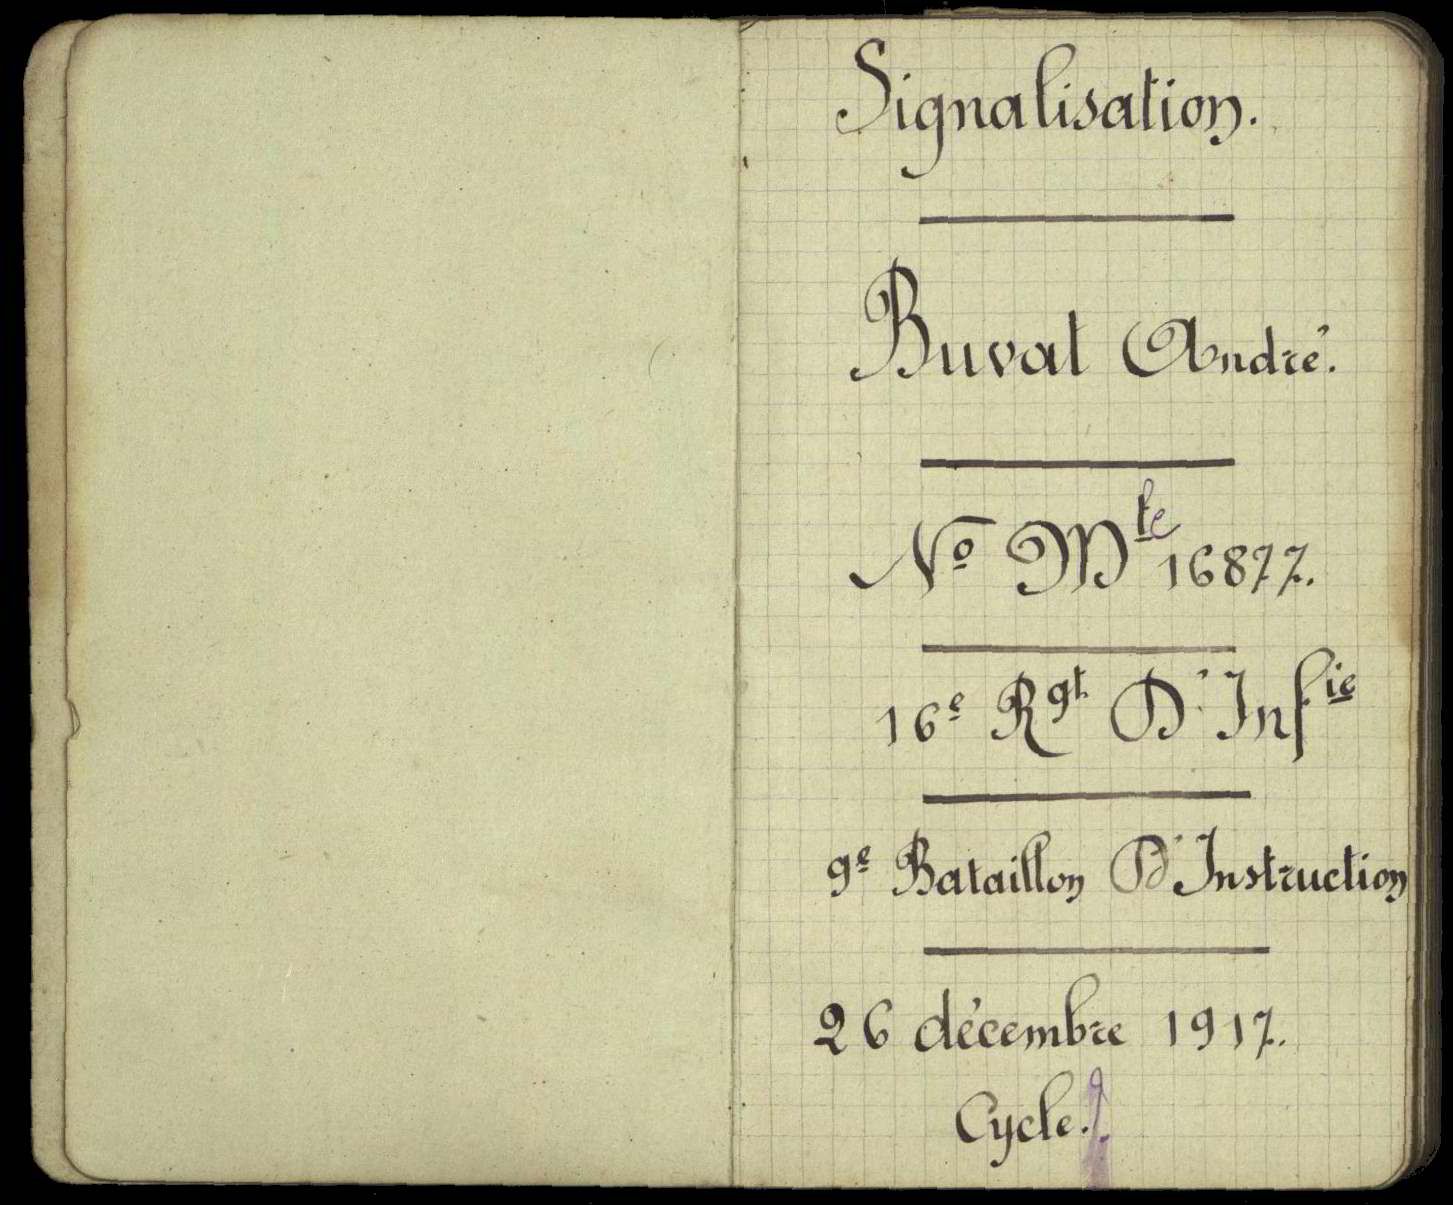 Signalisation.
Buvat André.
Nº Mte 16877.
16e Rgt D'Infie
9e Bataillon D'Instruction
26 décembre 1917.
Cycle.